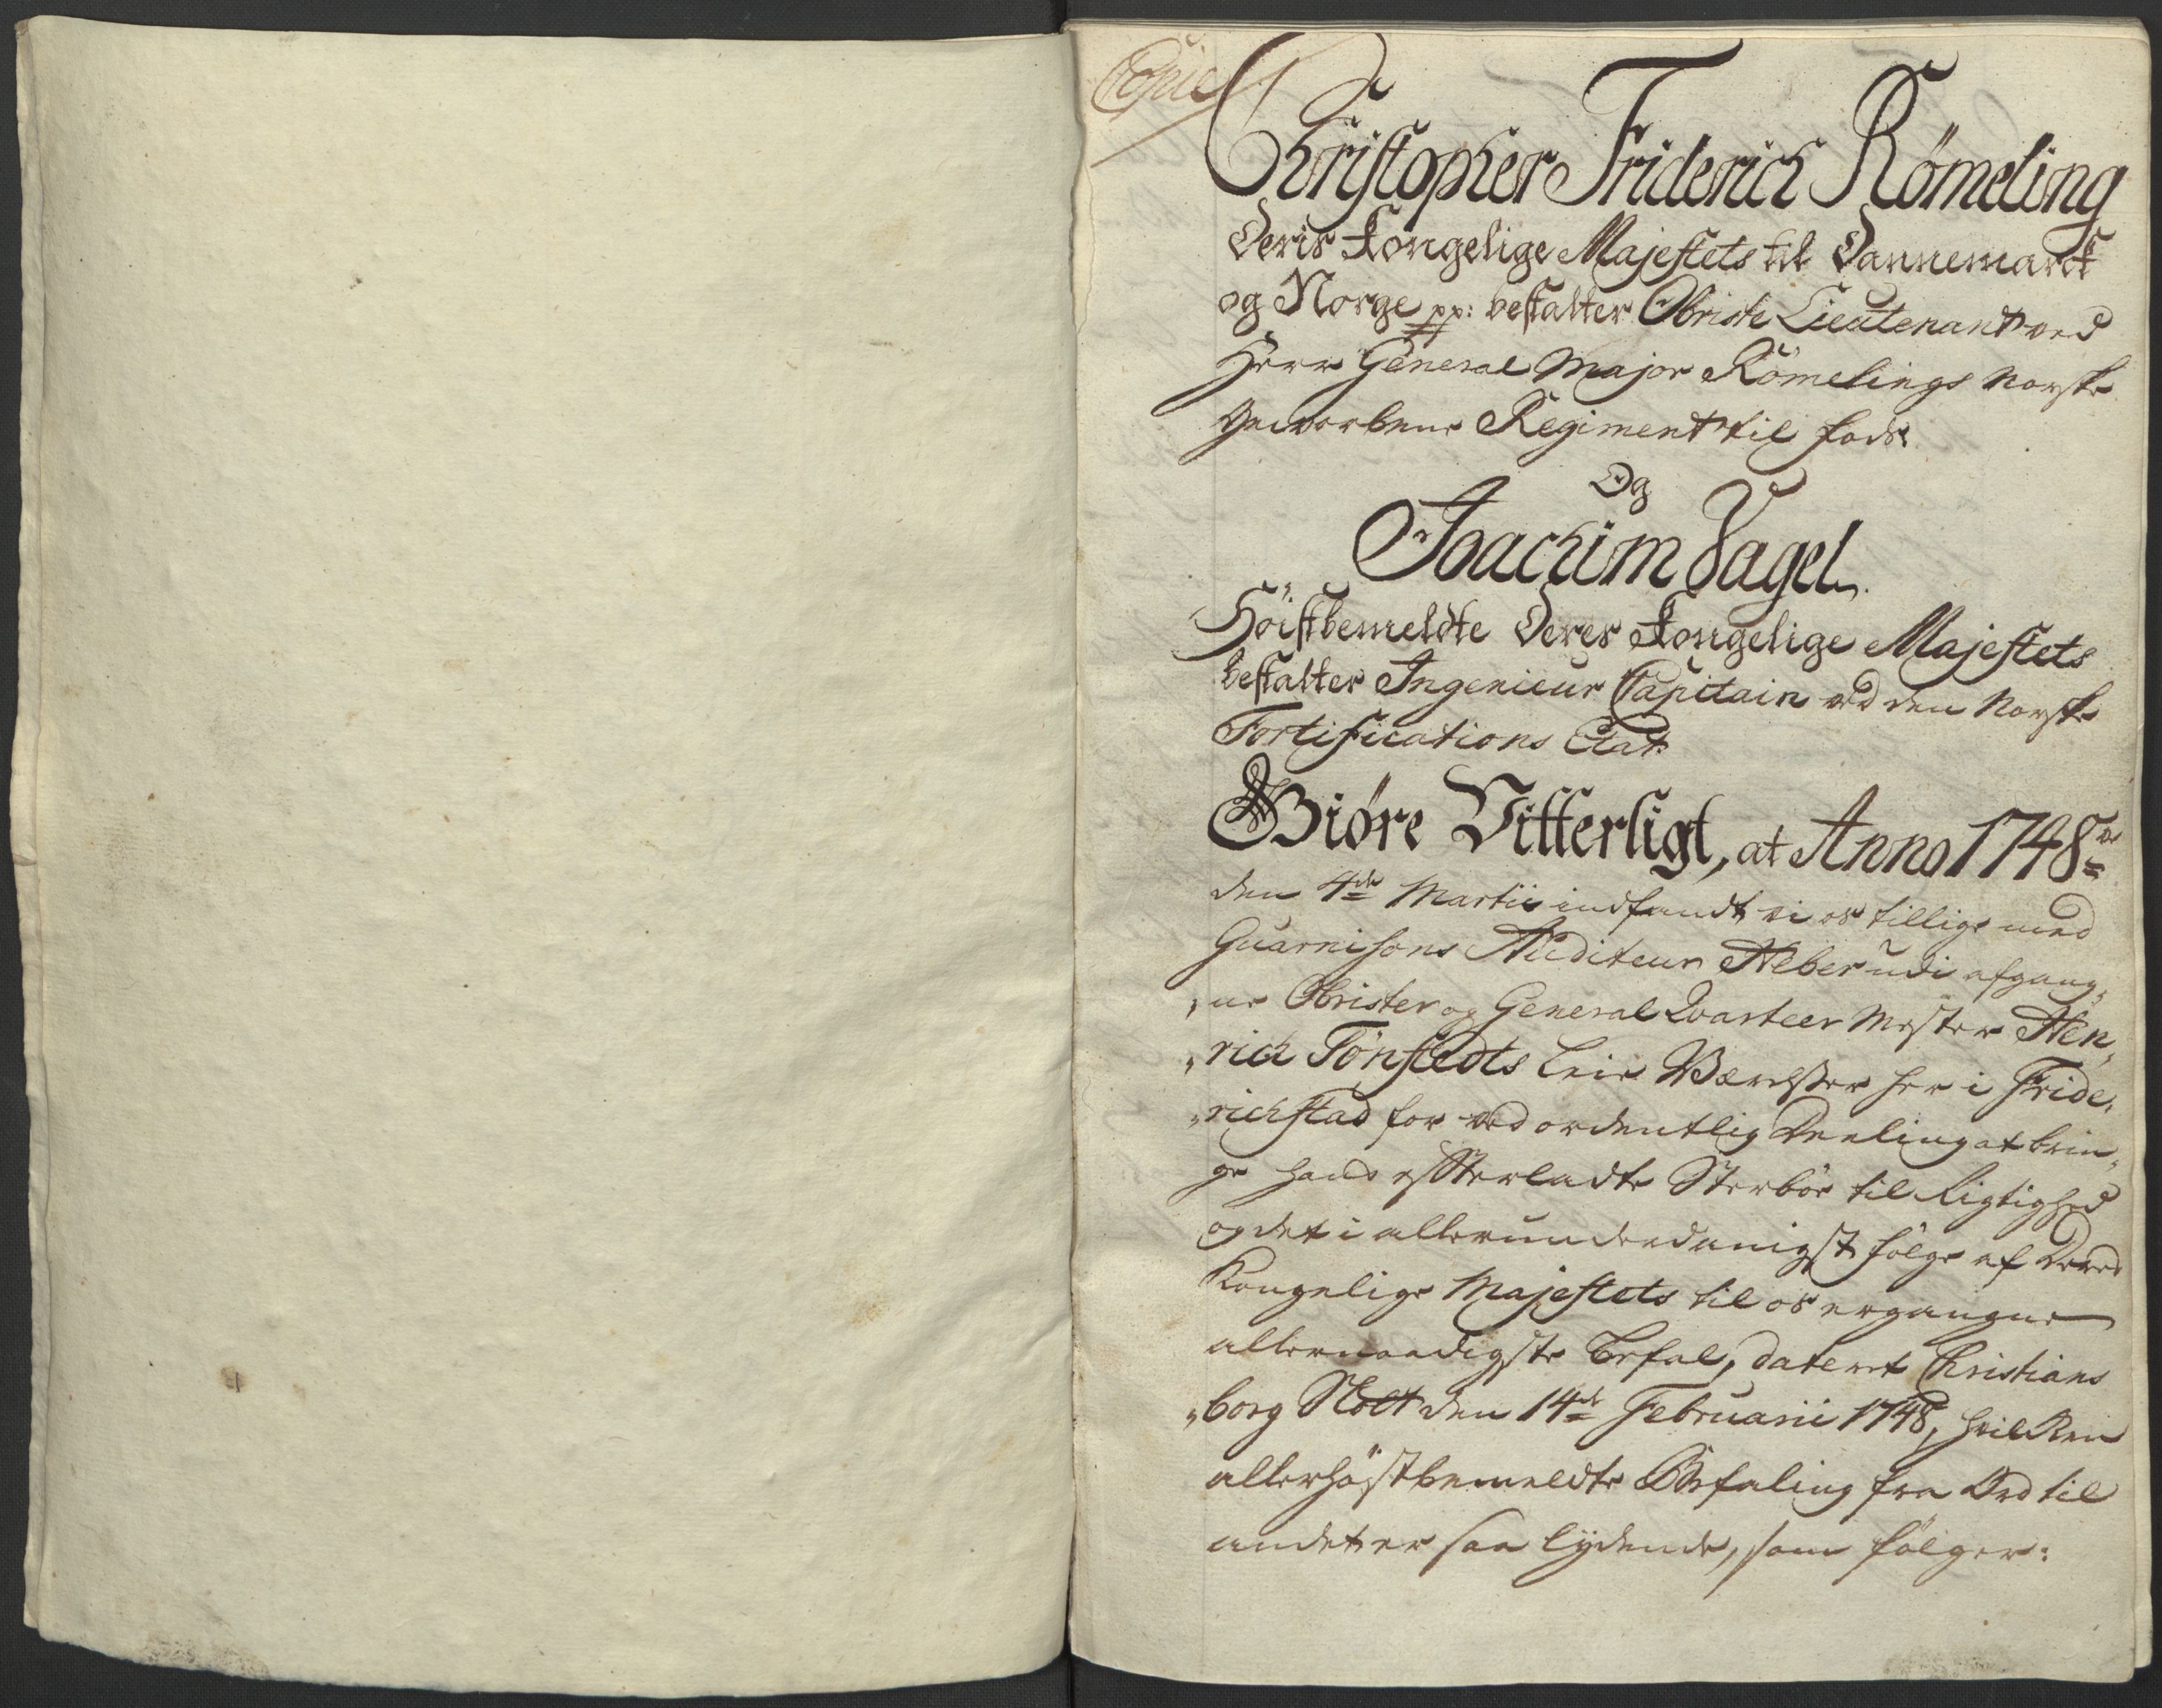 Copie
Christopher Friderich Römeling
Deris Kongelige Majestets til Dannemarck
og Norge pp: bestalter Obriste Lieutenant ved
Herr General Major Römelings Norske
Gevorbene Regiment til Fods
Og
Joachim Vagel
Höistbemeldte Deres Kongelige Majestets
bestalter Ingenieur Capitain ved den Norske
Fortifications Etat
Giöre Vitterligt, at Anno 1748
den 4de Martii indfandt vi os tillige med
Guarnisons Auditeur Heber udi afgang„
„ne Obrister og General Qvarteer Mester Hen„
„rich Tönstedts Leie Værelser her i Fride„
„richstad for ved ordentlig Deeling at brin„
ge hans efterladte Sterböe til Rigtighed
og det i allerunderdanigst fölge af Deres
Kongelige Majestets til os ergangne
allernaadigste Befal, dateret Christians
„borg Slott den 14de Februarii 1748, hvilken
allerhöstbemeldte Befaling fra Ord til
andet er saa lydende, som fölger: